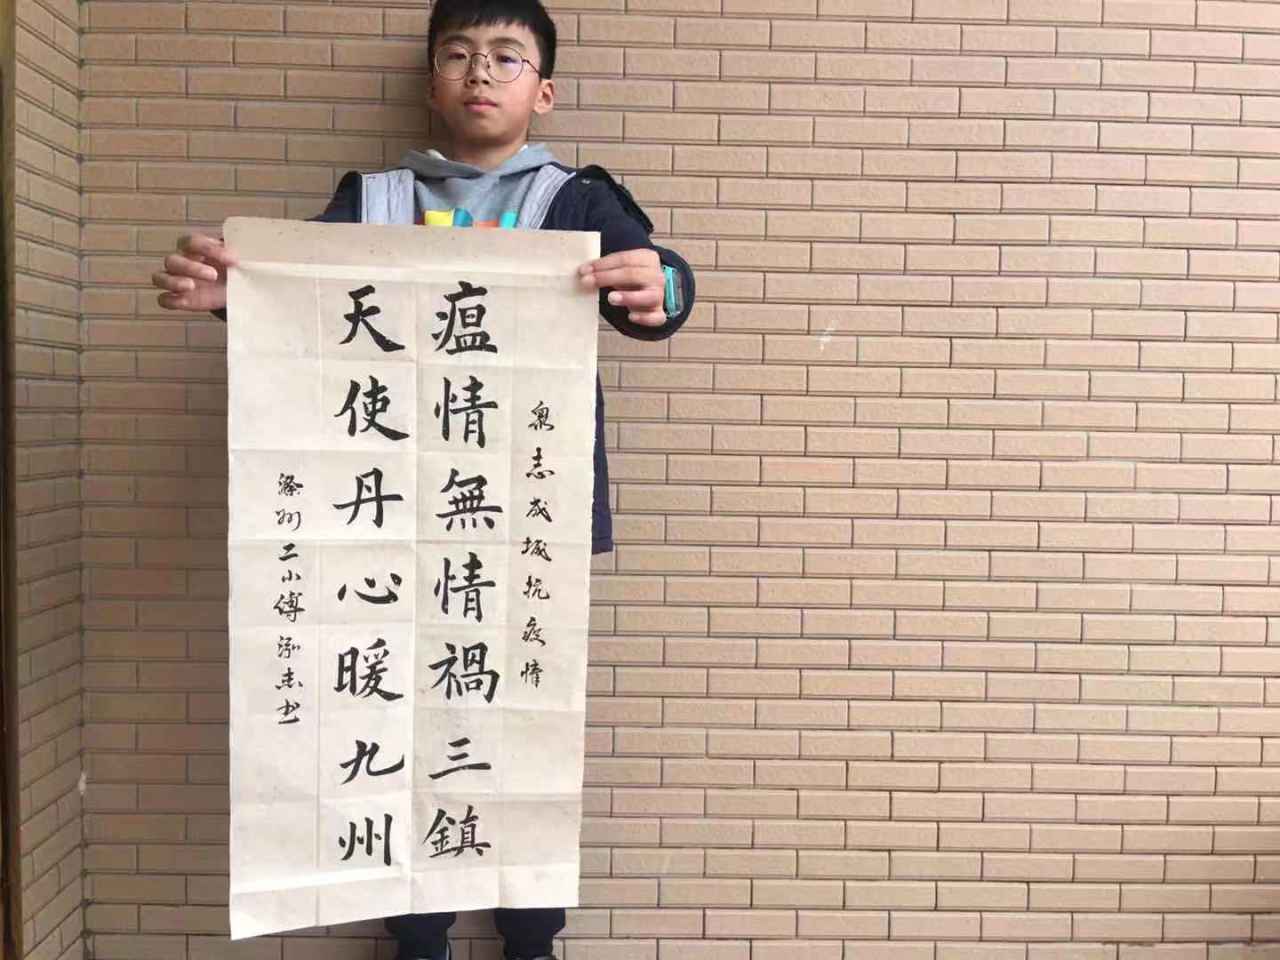 衆志成城抗疫情
瘟情無情禍三鎮
天使丹心暖九州
滁州二小傅泓志书